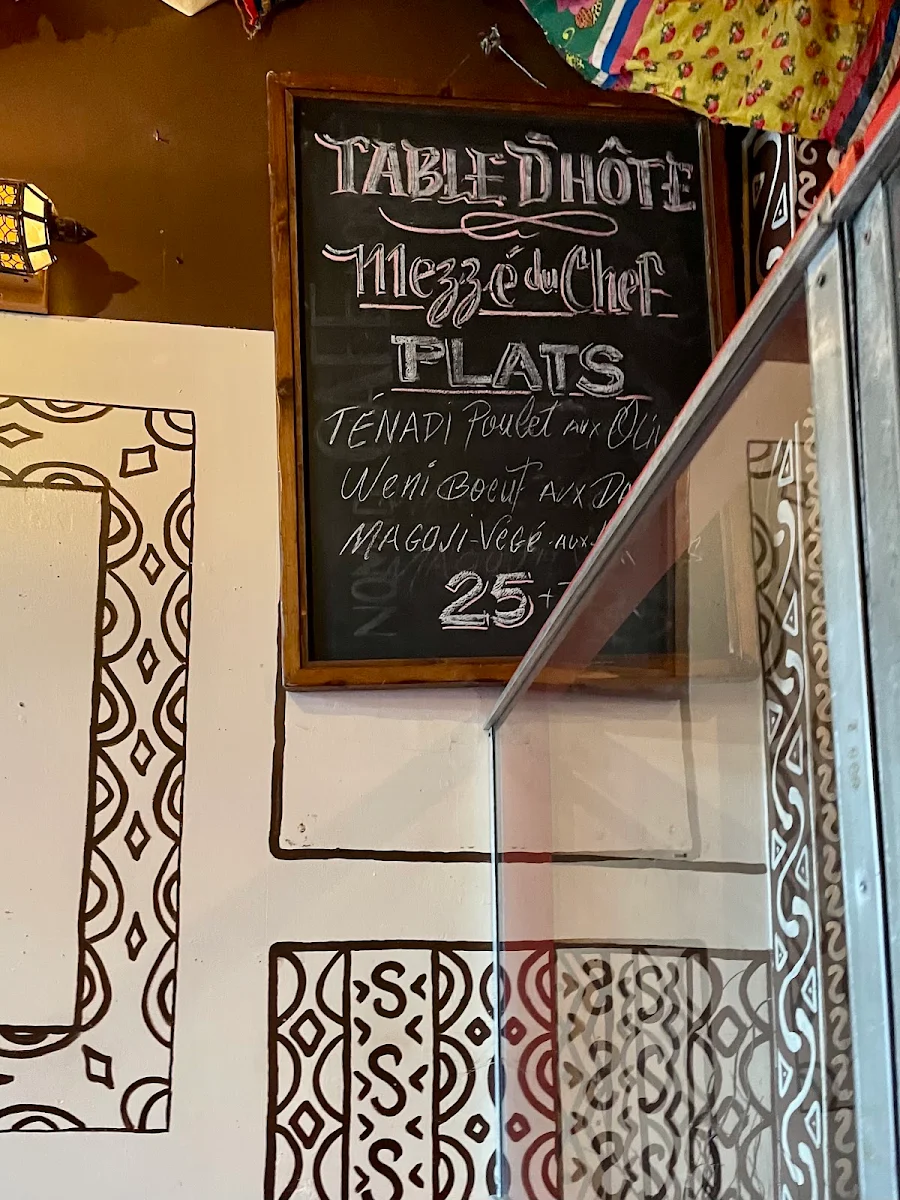 TABLE D'HÔTE
Mezzé du Chef
PLATS
TENADI Poulet AUX
Weni Boeuf AUX
MAGOJI-VEGÉ-AUX
25+